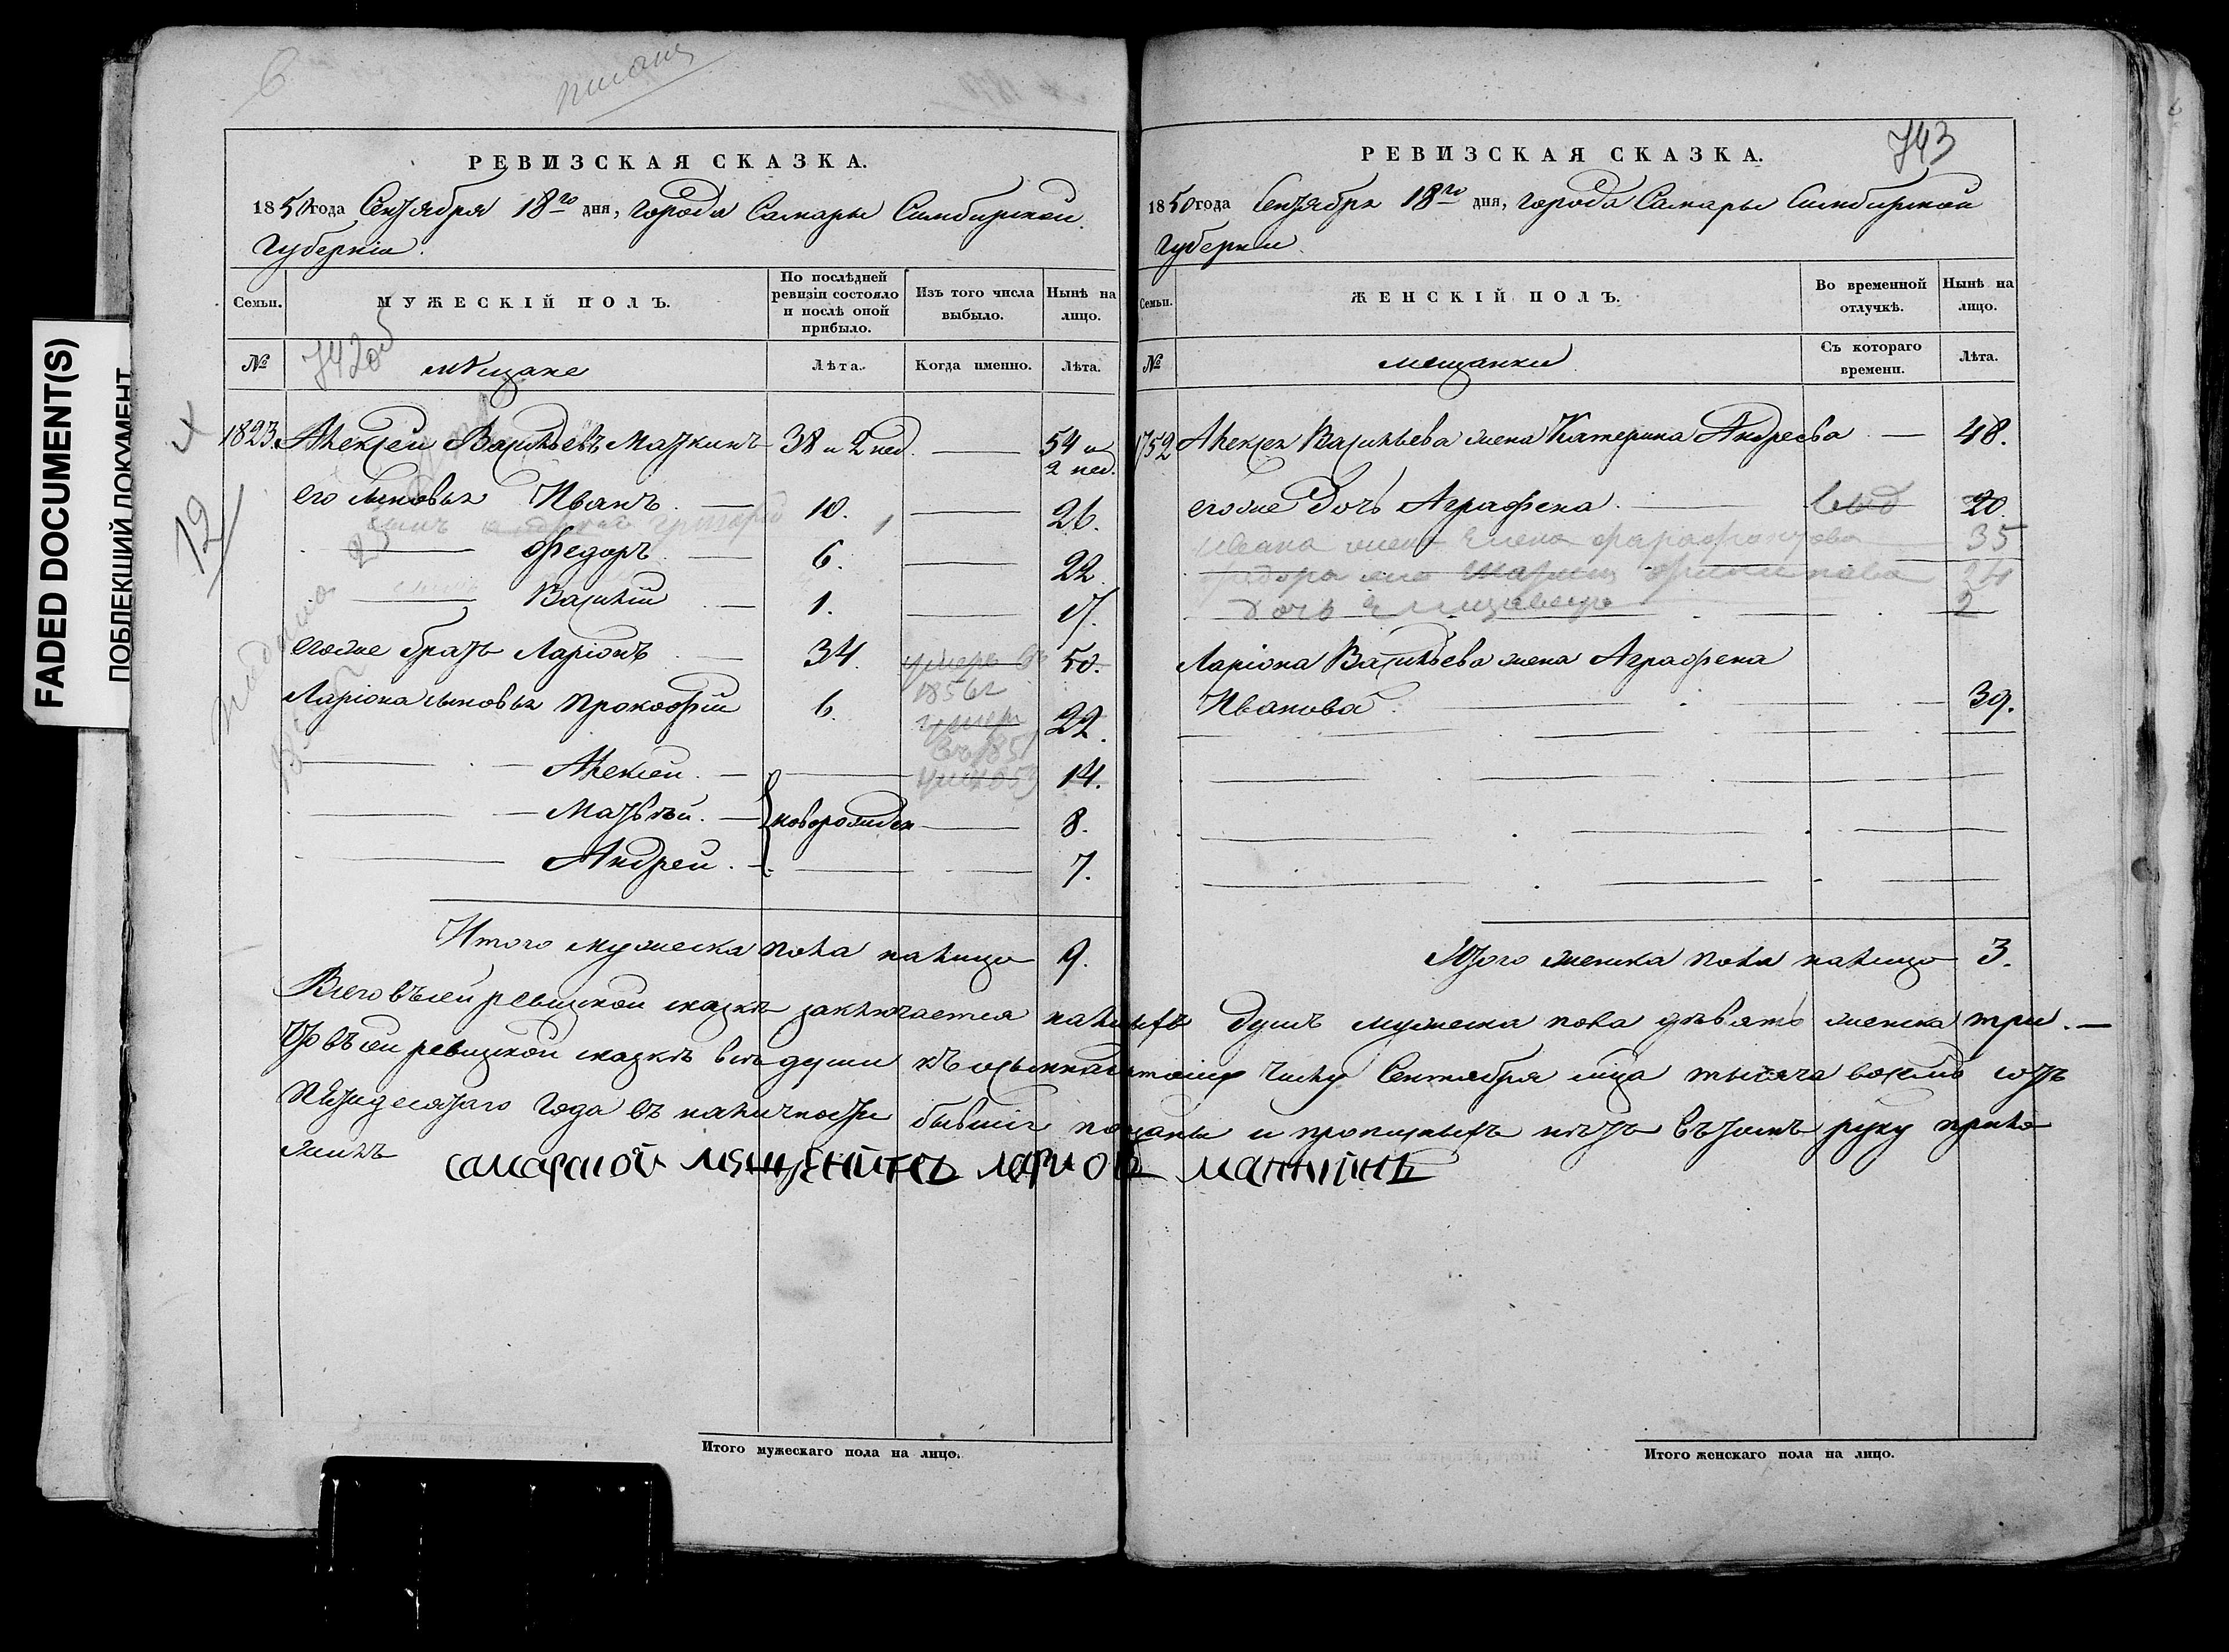 FADED DOCUMENT(S)
ПОБЛЕКШИЙ ДОКУМЕНТ
6
12
РЕВИЗСКАЯ СКАЗКА.
1850 года Сентября 18го дня, города Самары Симбирской
Губерніи.
Семьи. МУЖЕСКІЙ ПОЛЪ. По послѣдней ревизіи состояло и послѣ оной прибыло. Изъ того числа выбыло. Нынѣ на лицо.
№ 742 об мѣщане Лѣта. Когда именно. Лѣта.
1823. Алексей Васильевъ Маткинъ 38 и 2 нед. 54 и 2 нед.
его сыновья Иванъ 10. 26.
Григорій 1
Федоръ 6. 22.
Василій 1. 17.
его же братъ Ларіонъ 34. умеръ въ 1856 г 50.
Ларіона сыновья Прокофій 6. умеръ въ 185 22.
Алексей 14.
Матвѣй новорожден 8.
Андрей 7.
Итого мужеска пола налицо 9.
743
РЕВИЗСКАЯ СКАЗКА.
1850 года Сентября 18го дня, города Самары Симбирской
Губерніи.
Семьи. ЖЕНСКІЙ ПОЛЪ. Во временной отлучкѣ. Нынѣ на лицо.
№ мещанки Съ котораго времени. Лѣта.
1752 Алексея Васильева жена Катерина Андреева 48.
его же Дочь Аграфена выб 20.
Ивана жена Елена Фарафонтова 35
Федора жена Филипова 24
дочь Елизавета 2
Ларіона Васильева жена Аграфена
Иванова 39.
Итого женска пола налицо 3.
Всего въ сей ревизской сказкѣ заключается налицо душъ мужеска пола девять женска три.
Что въ сей ревизской сказкѣ все души къ осьмнадцатому числу Сентября мца тысяча восемь сотъ
пятидесятаго года въ наличности бывшіе показаны и прописныхъ нѣтъ въ томъ руку прило
жилъ
самарской мещенинъ ларион маткинъ
Итого мужескаго пола на лицо.
Итого женскаго пола на лицо.